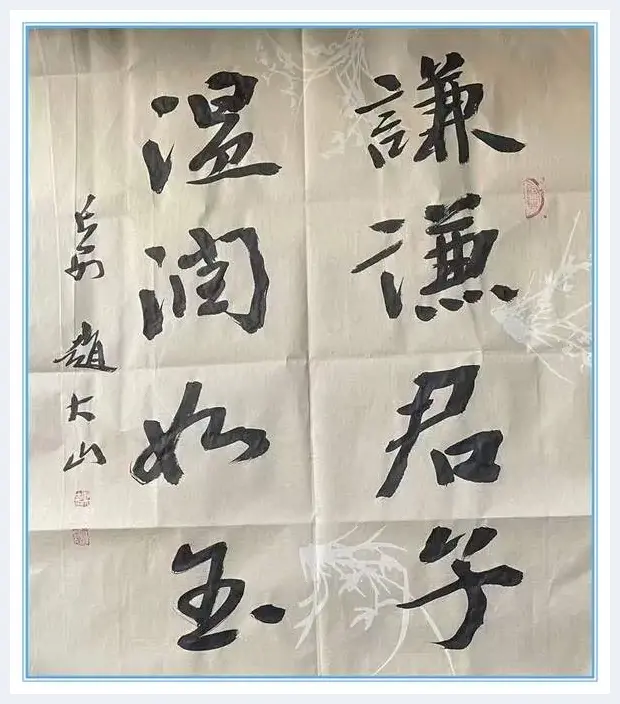 謙謙君子
溫潤如玉
趙大山